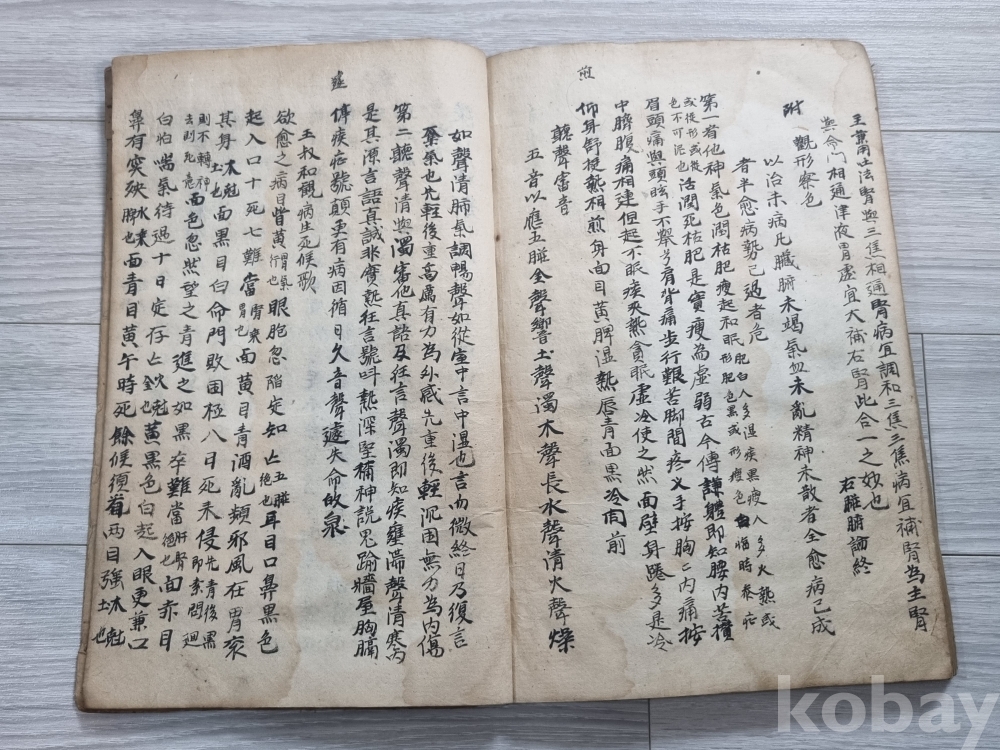 煎
主兼用此法腎與三焦相通腎病宜調和三焦三焦病宜補腎為主腎
與命門相通津液胃虛宜大補右腎此合一之妙也
右臟腑論終
附
觀形察色
以治未病凡臟腑未竭氣血未亂精神未散者全愈病已成
者半愈病勢已過者危
第一看他神氣色潤枯肥瘦起和眠
肥白人多濕痰黑瘦人多火熱或
形肥色黑或形瘦色白臨時參症
或從形或從
色不可泥也
活潤死枯肥是實瘦為虛弱古今傳謙體即知腰內苦攢
眉頭痛與頭眩手不擧兮肩背痛步行艱苦脚間疼叉手按胸胸內痛按
中臍腹痛相連但起不眠痰夾熱貪眠虛冷使之然面壁身踡多是冷
仰身舒挺熱相煎身面目黃脾湿熱唇青面黑冷同前
聽聲審音
五音以應五臟金聲響土聲濁木聲長水聲清火聲燥
如聲清肺氣調暢聲如從室中言中湿也言而微終日乃復言
奪氣也先輕後重高厲有力為外感先重後輕沉困無力為內傷
第二聽聲清與濁審他真語及狂言聲濁即知痰壅滯聲清寒內
是其源言語真誠非實熱狂言號呌熱深堅稱神說鬼踰墻屋胸膈
停痰症號顛更有病因循日久音聲遽失命故泉
王叔和觀病生死候歌
欲愈之病目眥黃
胃氣
行也
眼胞忽陷定知亡
五臟
絕也
耳目口鼻黑色
起入口十死七難當
腎乘
胃也
面黃目青酒亂頻邪風在胃衰
其身
木尅
土也
面黑目白命門敗困極八日死來侵
先青後黑
即素問廻
則不轉神
去則死意
面色忽然望之青進之如黑卒難當
肝腎
絕也
面赤目
白怕喘氣待過十日定存亡
火尅
金也
黃黑色白起入眼更兼口
鼻有突殃
水乘
脾也
面青目黃午時死餘候須看兩日強
木尅
土也
kobay